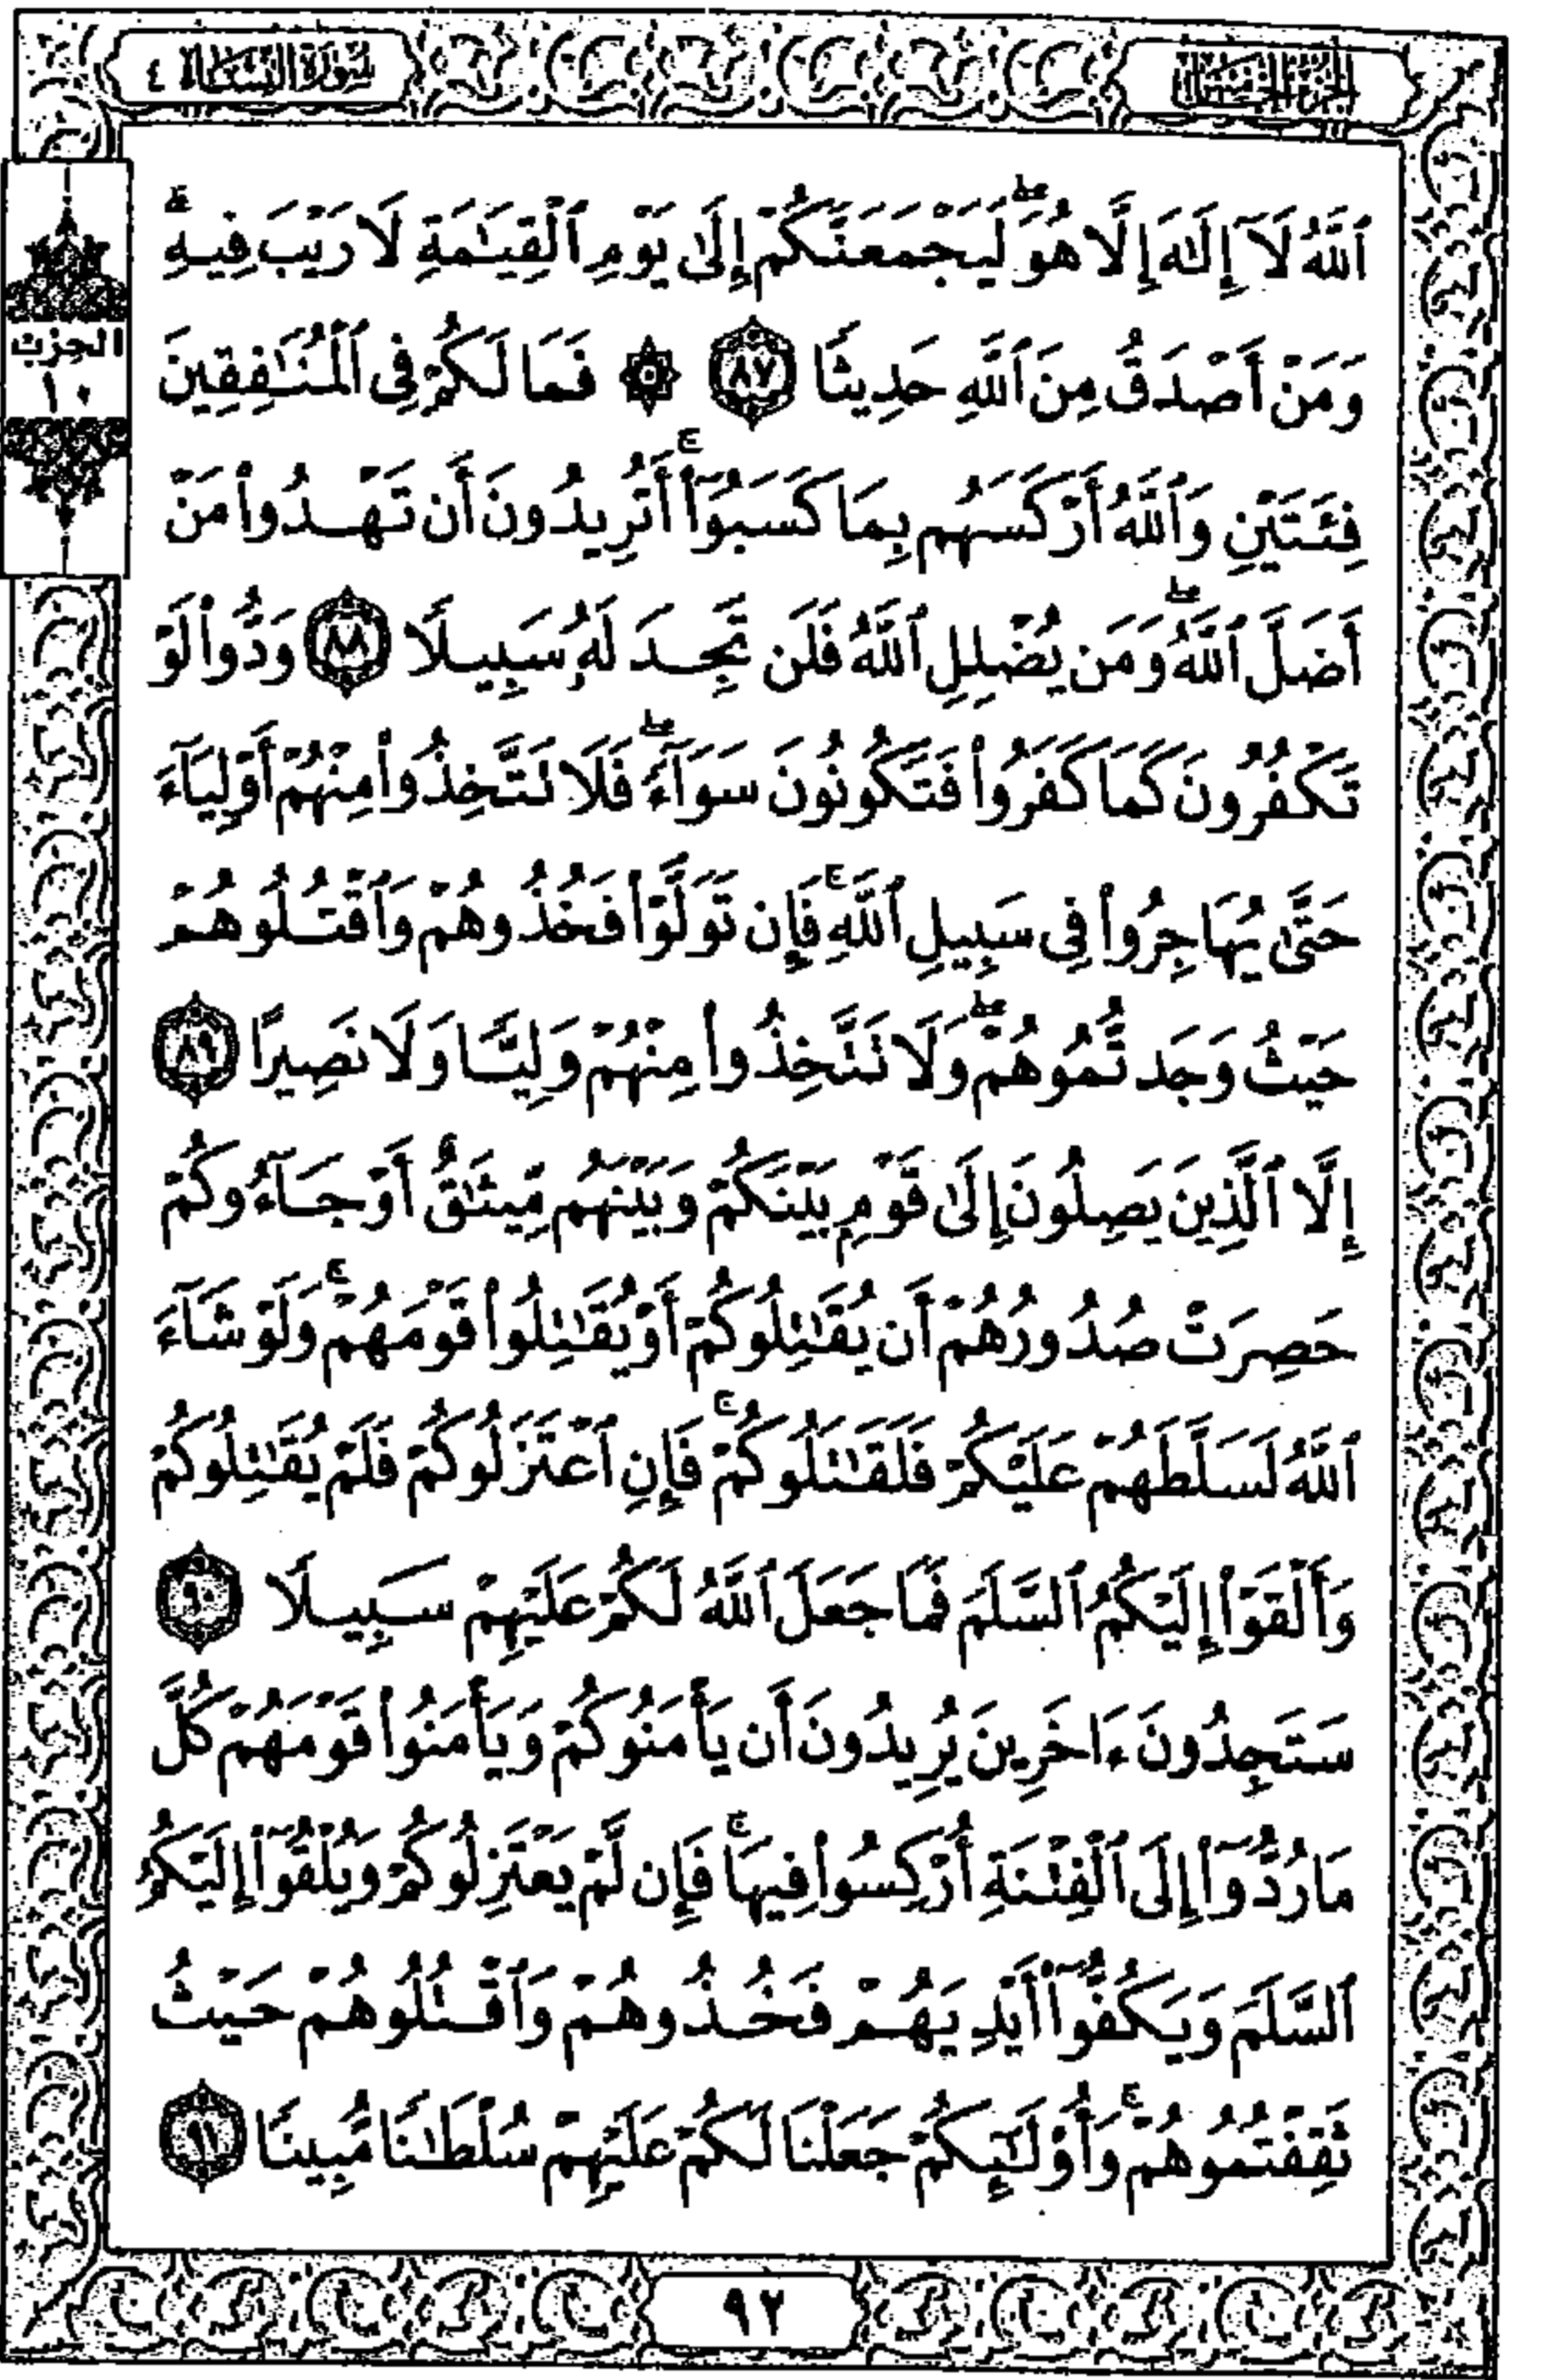 الجزء الخامس
سورة النساء ٤
الحزب
١٠
ٱللَّهُ لَآ إِلَٰهَ إِلَّا هُوَۖ لَيَجْمَعَنَّكُمْ إِلَىٰ يَوْمِ ٱلْقِيَٰمَةِ لَا رَيْبَ فِيهِۗ
وَمَنْ أَصْدَقُ مِنَ ٱللَّهِ حَدِيثًا ٨٧ ۞ فَمَا لَكُمْ فِى ٱلْمُنَٰفِقِينَ
فِئَتَيْنِ وَٱللَّهُ أَرْكَسَهُم بِمَا كَسَبُوٓا۟ۚ أَتُرِيدُونَ أَن تَهْدُوا۟ مَنْ
أَضَلَّ ٱللَّهُۖ وَمَن يُضْلِلِ ٱللَّهُ فَلَن تَجِدَ لَهُۥ سَبِيلًا ٨٨ وَدُّوا۟ لَوْ
تَكْفُرُونَ كَمَا كَفَرُوا۟ فَتَكُونُونَ سَوَآءًۖ فَلَا تَتَّخِذُوا۟ مِنْهُمْ أَوْلِيَآءَ
حَتَّىٰ يُهَاجِرُوا۟ فِى سَبِيلِ ٱللَّهِۚ فَإِن تَوَلَّوْا۟ فَخُذُوهُمْ وَٱقْتُلُوهُمْ
حَيْثُ وَجَدتُّمُوهُمْۖ وَلَا تَتَّخِذُوا۟ مِنْهُمْ وَلِيًّا وَلَا نَصِيرًا ٨٩
إِلَّا ٱلَّذِينَ يَصِلُونَ إِلَىٰ قَوْمٍۭ بَيْنَكُمْ وَبَيْنَهُم مِّيثَٰقٌ أَوْ جَآءُوكُمْ
حَصِرَتْ صُدُورُهُمْ أَن يُقَٰتِلُوكُمْ أَوْ يُقَٰتِلُوا۟ قَوْمَهُمْۚ وَلَوْ شَآءَ
ٱللَّهُ لَسَلَّطَهُمْ عَلَيْكُمْ فَلَقَٰتَلُوكُمْۚ فَإِنِ ٱعْتَزَلُوكُمْ فَلَمْ يُقَٰتِلُوكُمْ
وَأَلْقَوْا۟ إِلَيْكُمُ ٱلسَّلَمَ فَمَا جَعَلَ ٱللَّهُ لَكُمْ عَلَيْهِمْ سَبِيلًا ٩٠
سَتَجِدُونَ ءَاخَرِينَ يُرِيدُونَ أَن يَأْمَنُوكُمْ وَيَأْمَنُوا۟ قَوْمَهُمْ كُلَّ
مَا رُدُّوٓا۟ إِلَى ٱلْفِتْنَةِ أُرْكِسُوا۟ فِيهَاۚ فَإِن لَّمْ يَعْتَزِلُوكُمْ وَيُلْقُوٓا۟ إِلَيْكُمُ
ٱلسَّلَمَ وَيَكُفُّوٓا۟ أَيْدِيَهُمْ فَخُذُوهُمْ وَٱقْتُلُوهُمْ حَيْثُ
ثَقِفْتُمُوهُمْۚ وَأُو۟لَٰٓئِكُمْ جَعَلْنَا لَكُمْ عَلَيْهِمْ سُلْطَٰنًا مُّبِينًا ٩١
٩٢